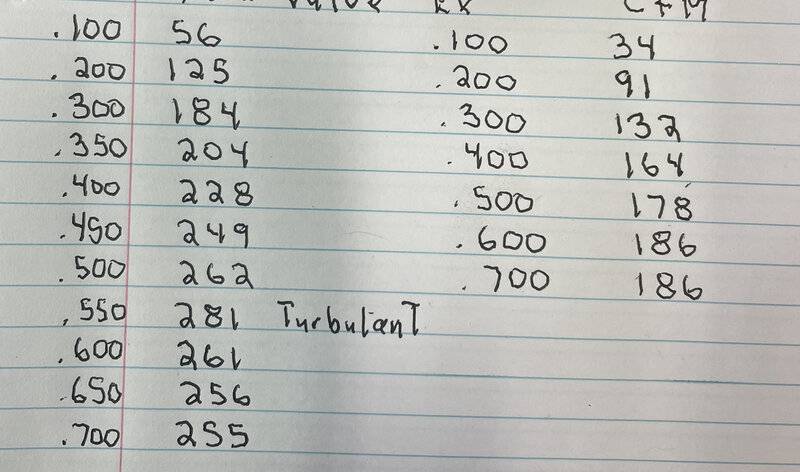 Value EX CFM
.100 56 .100 34
.200 125 .200 91
.300 184 .300 132
.350 204 .400 164
.400 228 .500 178
.450 249 .600 186
.500 262 .700 186
.550 281 Turbulant
.600 261
.650 256
.700 255